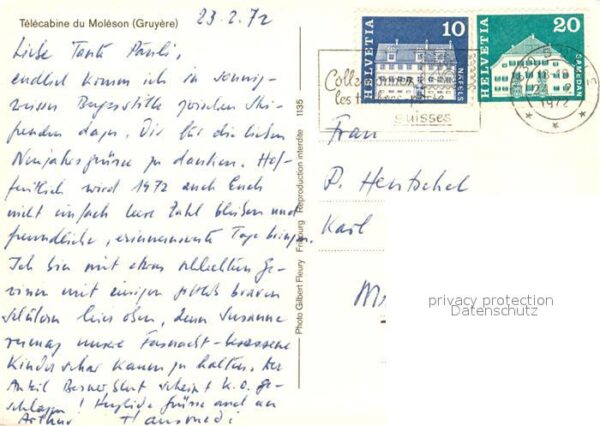 Télécabine du Moléson (Gruyère)
23.2.72
Liebe Tante Pauli,
endlich komme ich in sonnig-
Bergstille zwischen Ski-
Dir für die lieben
Neujahrsgrüsse zu danken. Hof-
fentlich wird 1972 auch Euch
nicht einfach leere Zahl bleiben und
freundliche, erinnernswerte Tage bringen.
Ich bin mit etwas schlechten Ge-
wissen mit einigen braven
Schülern hier oben, denn Susanne
vermag unsere Fasnacht-besessene
Kinderschar kaum zu halten. Der
Anteil Bernerblut scheint k.o. ge-
schlagen! Herzliche Grüsse auch an
Arthur Hansruedi
Photo Gilbert Fleury Fribourg Reproduction interdite 1135
HELVETIA 10 NÄFELS
HELVETIA 20 SAMEDAN
les
suisses
1972
Frau
P. Hentschel
Karl
privacy protection
Datenschutz